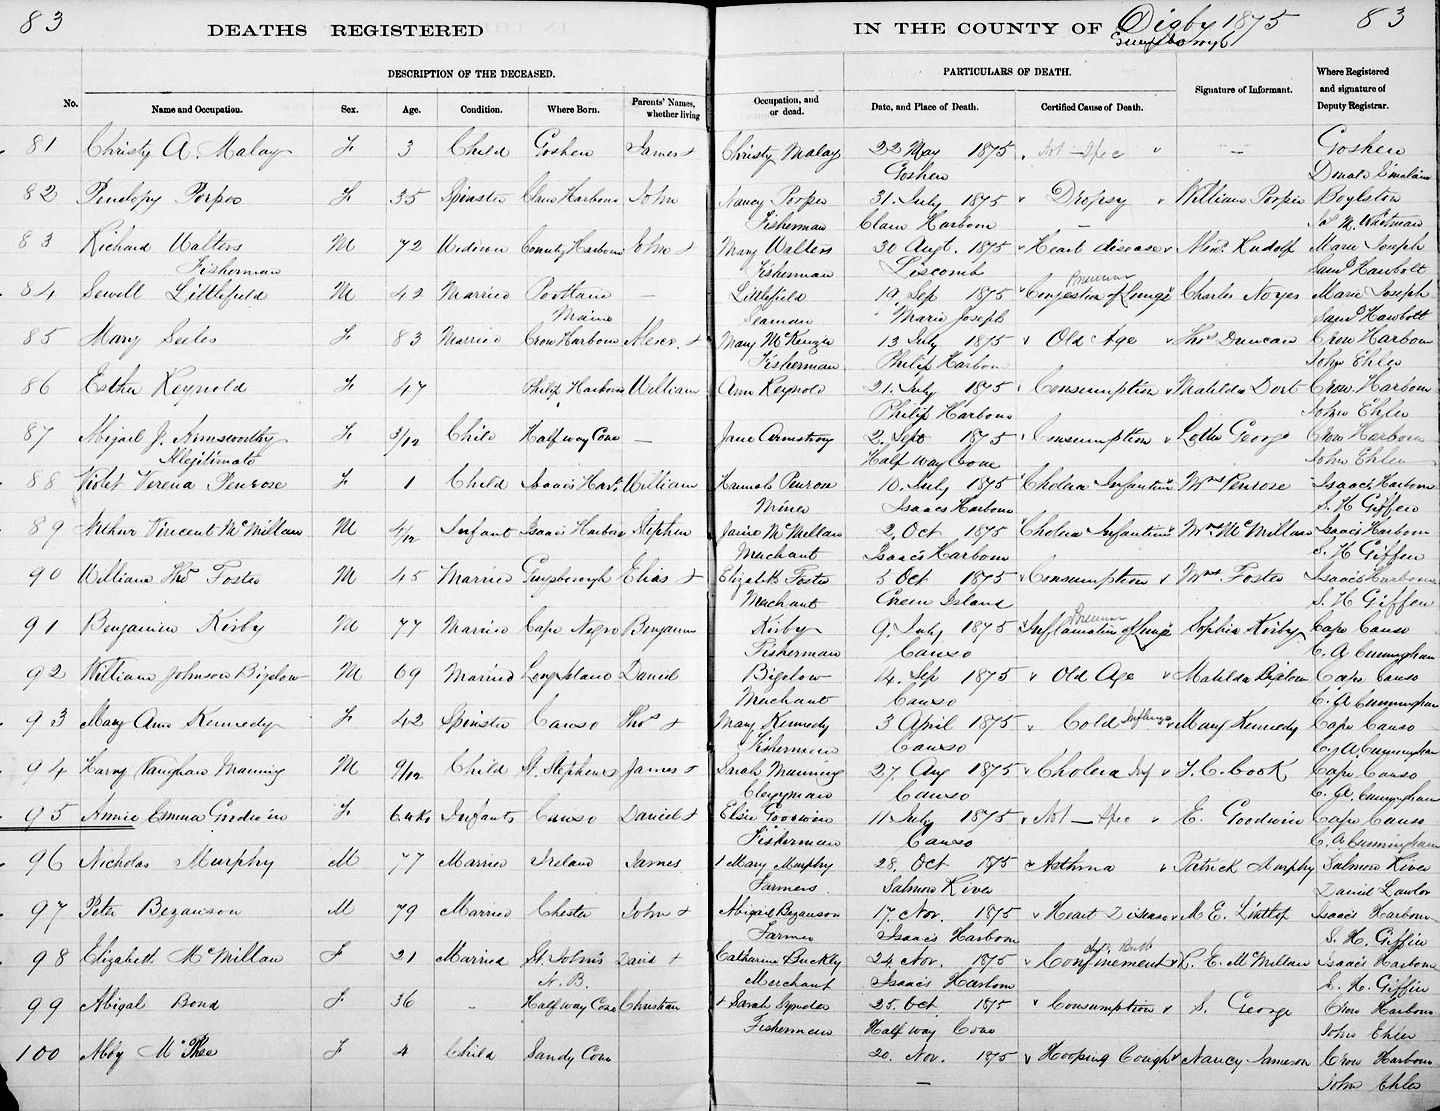 83
DEATHS REGISTERED IN THE COUNTY OF Digby 1875
Guysborough
83
DESCRIPTION OF THE DECEASED.
PARTICULARS OF DEATH.
No. Name and Occupation. Sex. Age. Condition. Where Born. Parents' Names, whether living Occupation, and or dead. Date, and Place of Death. Certified Cause of Death. Signature of Informant. Where Registered and signature of Deputy Registrar.
81 Christy A. Malay F 3 Child Goshen James + Christy Malay 22 May 1875 Not Spec — Goshen
Goshen Donald Sinclair
82 Penelopy Porper F 35 Spinster Clam Harbour John Nancy Porper 31 July 1875 Dropsy William Porper Boylston
Fisherman Clam Harbour — Jas M. Whitman
83 Richard Walters M 72 Widower Country Harbour John + Mary Walters 30 Augt. 1875 Heart disease Rudolf Marie Joseph
Fisherman Fisherman Liscomb Saml Hawbolt
84 Sewell Littlefield M 42 Married Portland — Littlefield 19 Sep 1875 Congestion of Lungs Charles Noyes Marie Joseph
Pneumon
Maine Seaman Marie Joseph Saml Hawbolt
85 Mary Seeles F 83 Married Crow Harbour Alexr. + Mary McKenzie 13 July 1875 Old Age Thos Duncan Crow Harbour
Fisherman Philip Harbour John Ehler
86 Esther Reynold F 47 Philip Harbour William Ann Reynold 21 July 1875 Consumption Matilda Dort Crow Harbour
Philip Harbour John Ehler
87 Abigail J. Armsworthy F 3/12 Child Half way Cove — Jane Armstrong 2 Sept 1875 Consumption George Crow Harbour
Illegitimate Half way Cove John Ehler
88 Violet Verena Penrose F 1 Child Isaac's Harb. William Hannah Penrose 10 July 1875 Cholera Infantum Mrs Penrose Isaacs Harbour
Miner Isaacs Harbour S. H Giffin
89 Arthur Vincent McMillan M 4/12 Infant Isaacs Harbour Stephen Janie McMillan 2 Oct 1875 Cholera Infantum Mrs McMillan Isaacs Harbour
Merchant Isaacs Harbour S. H Giffin
90 William Thos Foster M 45 Married Guysborough Elias + Elizabeth Foster 5 Oct 1875 Consumption Mrs Foster Isaacs Harbour
Merchant Green Island S. H Giffin
91 Benjamin Kirby M 77 Married Cape Negro Benjamin Kirby 9 July 1875 Inflamation of Lungs Sophia Kirby Cape Canso
Pneumon
Fisherman Canso C. A Cunningham
92 William Johnson Bigelow M 69 Married Long Island Daniel Bigelow 14 Sep 1875 Old Age Matilda Bigelow Cape Canso
Merchant Canso C. A Cunningham
93 Mary Ann Kennedy F 42 Spinster Canso Thos + Mary Kennedy 3 April 1875 Cold Influenza Mary Kennedy Cape Canso
Fisherman Canso C. A Cunningham
94 Harry Vaughan Manning M 9/12 Child St. Stephens James + Sarah Manning 27 Aug 1875 Cholera Inf T. C. Cook Cape Canso
Clergyman Canso C. A. Cunningham
95 Annie Emma Goodwin F 6 wks Infant Canso Daniel + Elsie Goodwin 11 July 1875 Not — Spec E. Goodwin Cape Canso
Fisherman Canso C. A Cunningham
96 Nicholas Murphy M 77 Married Ireland James + Mary Murphy 28 Oct 1875 Asthma Patrick Murphy Salmon River
Farmers Salmon River Daniel Lawlor
97 Peter Bezanson M 79 Married Chester John + Abigail Bezanson 17 Nov. 1875 Heart Disease M E. Linthop Isaacs Harbour
Farmer Isaacs Harbour S. H. Giffin
98 Elizabeth McMillan F 21 Married St. John's David + Catharine Buckley 24 Nov. 1875 Confinement E. McMillan Isaacs Harbour
Child Birth
N. B. Merchant Isaacs Harbour S. H. Giffin
99 Abigal Bond F 36 - Half way Cove Christian + Sarah 25 Oct 1875 Consumption S. George Crow Harbour
Fisherman Half way Cove John Ehler
100 Abby McPhee F 4 Child Sandy Cove 20 Nov. 1875 Hooping Cough Nancy Jameson Crow Harbour
— John Ehler